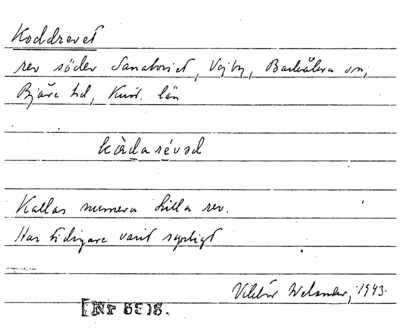 Koddrevet
rev söder Sanatoriet, Vejby, Barkåkra sn,
Bjäre hd, Krist. län
kàdarévəd
Kallas numera Lilla rev.
Har tidigare varit synligt
Viktor Welander, 1943.
[Nr 5518.